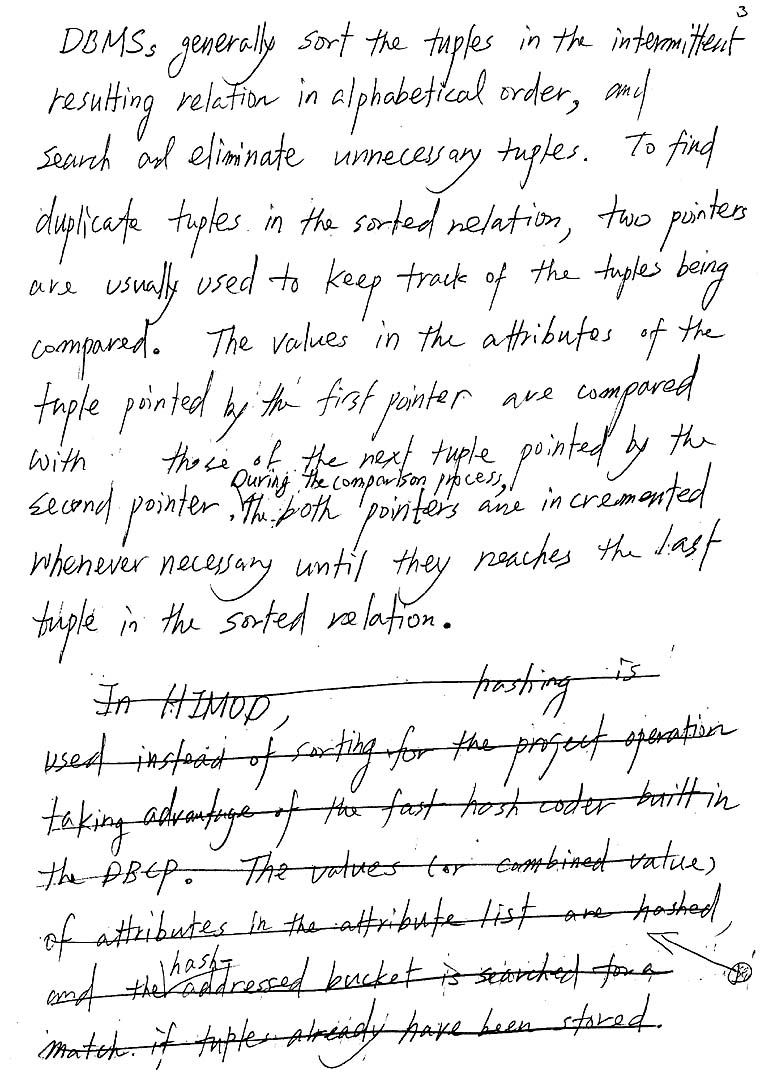 3
DBMSs generally sort the tuples in the intermittent
resulting relation in alphabetical order, and
search and eliminate unnecessary tuples. To find
duplicate tuples in the sorted relation, two pointers
are usually used to keep track of the tuples being
compared. The values in the attributes of the
tuple pointed by the first pointer are compared
with those of the next tuple pointed by the
During the comparison process,
second pointer. The both pointers are incremented
whenever necessary until they reaches the last
tuple in the sorted relation.
In HIMOD, hashing is
used instead of sorting for the project operation
taking advantage of the fast hash coder built in
the DBCP. The values (or combined value)
of attributes in the attribute list are hashed,
hash-
and the addressed bucket is searched for a
match if tuples already have been stored.